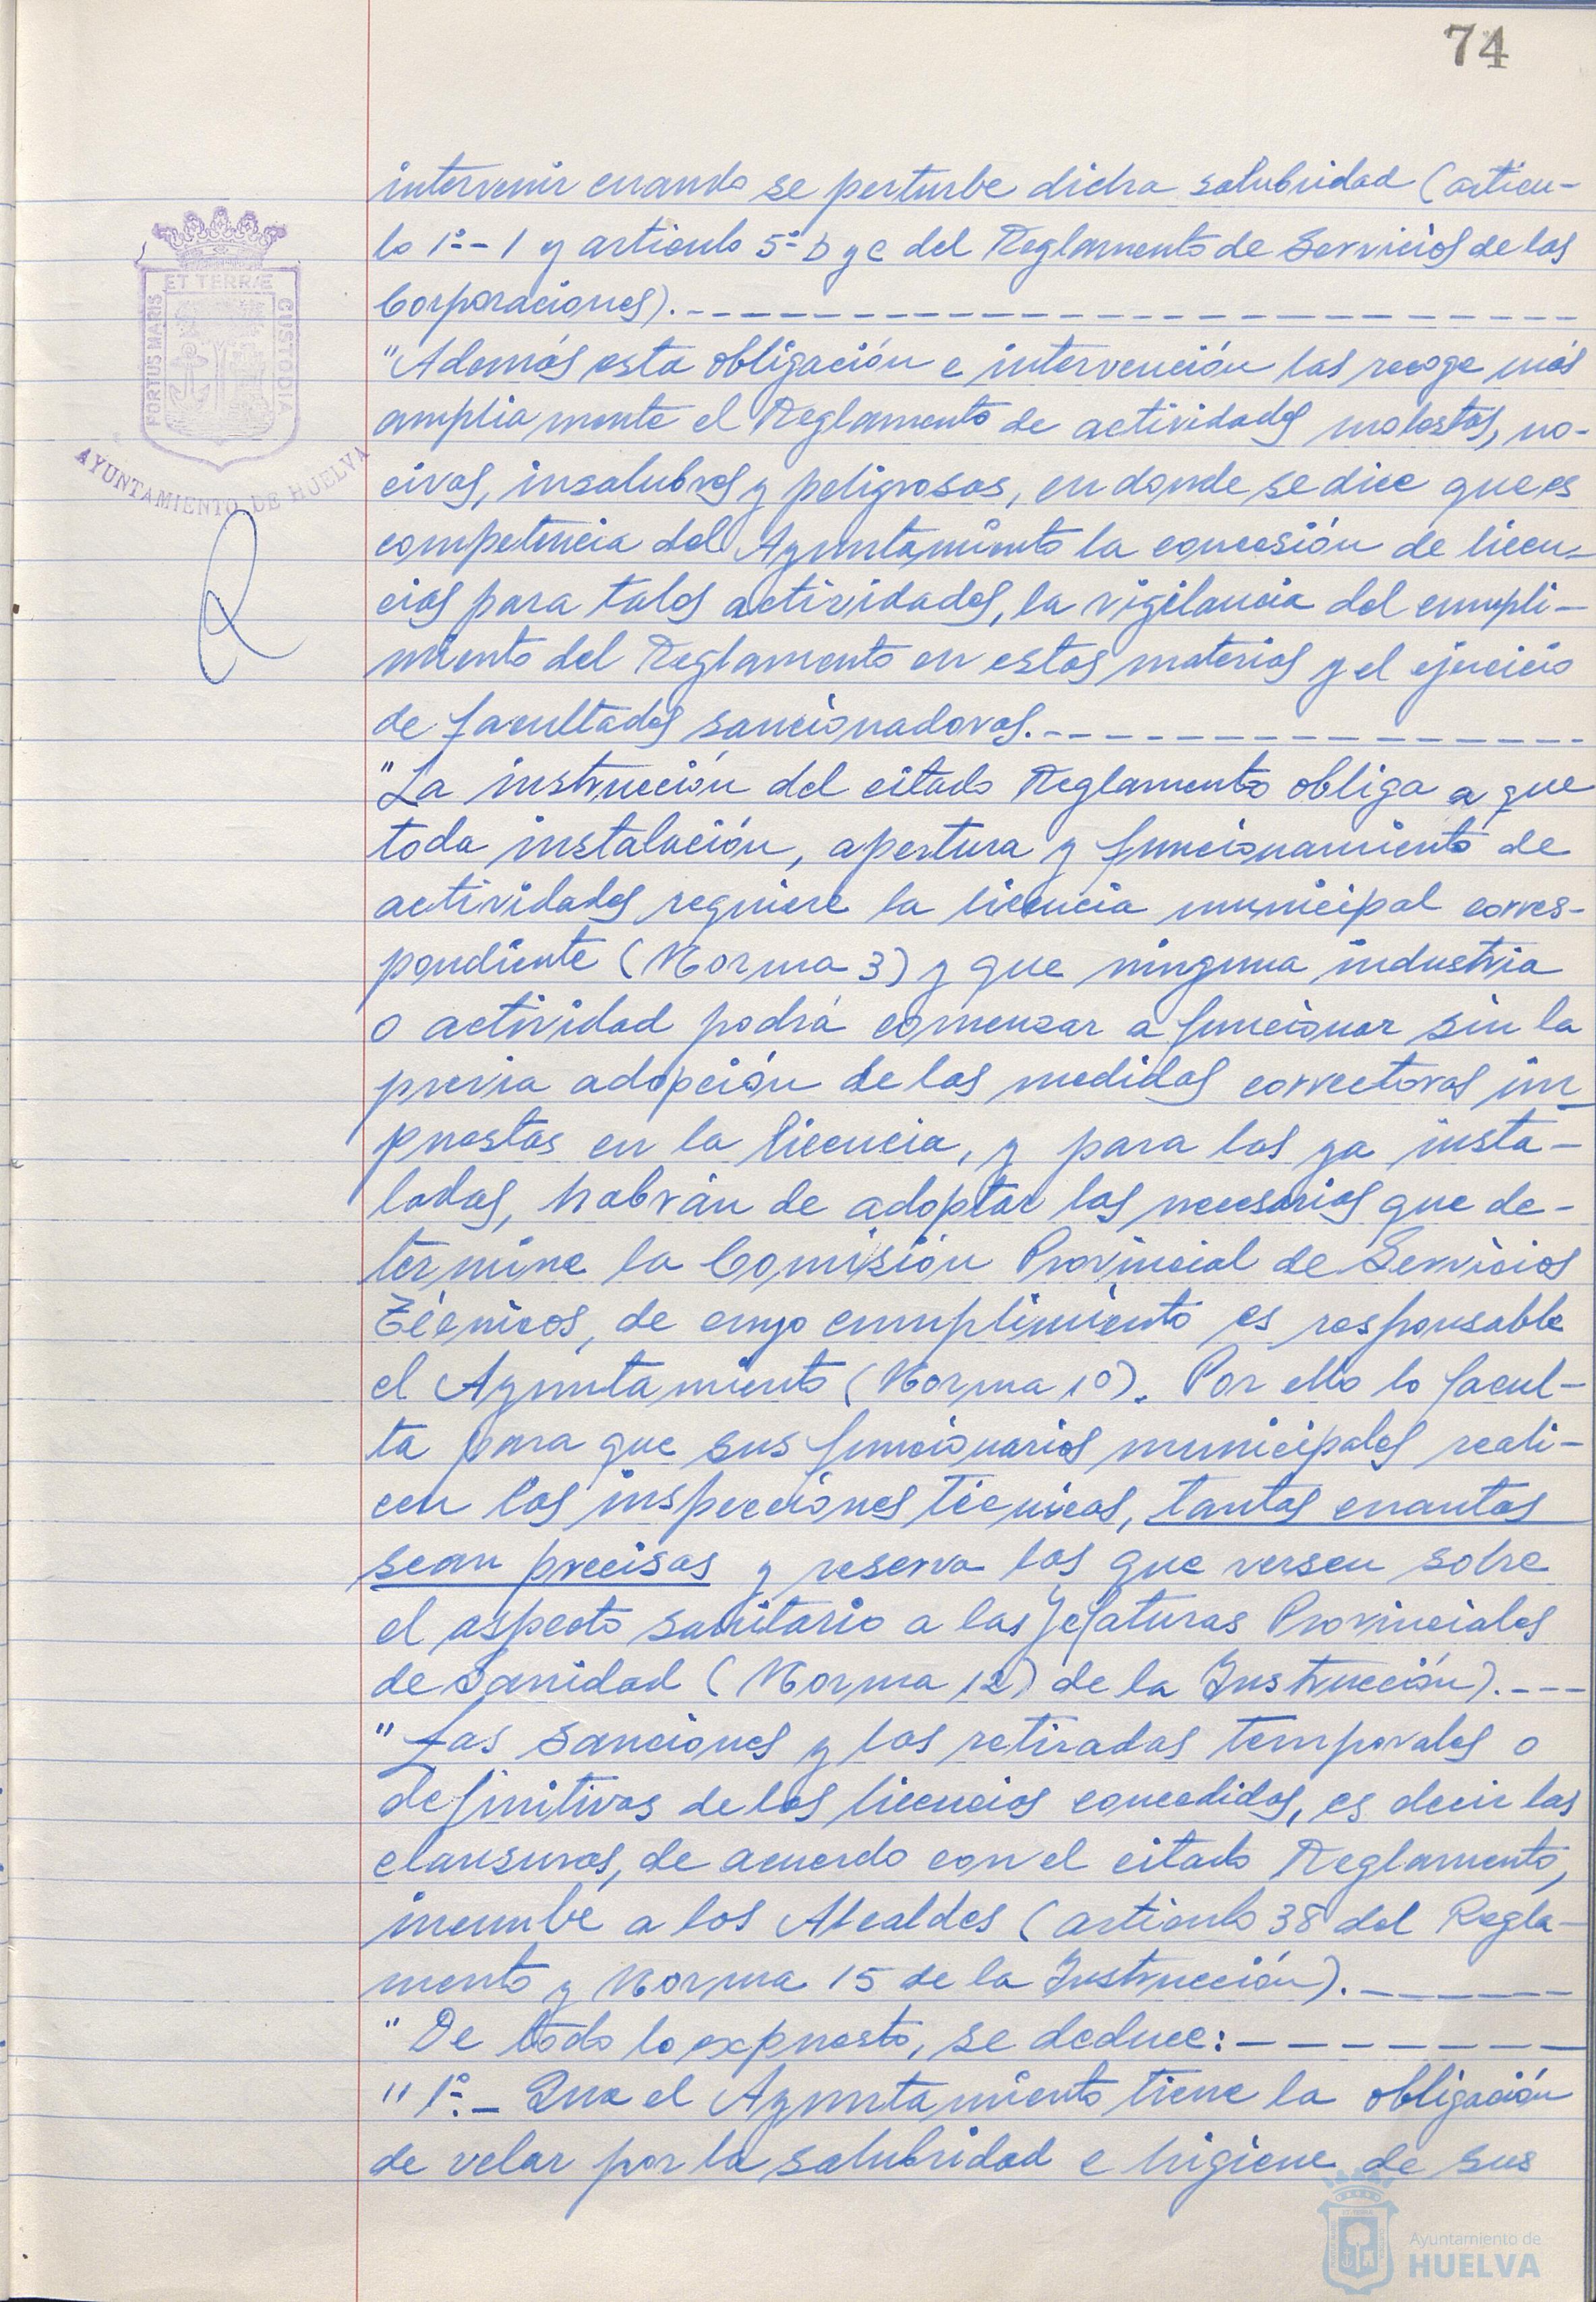 74
intervenir cuando se perturbe dicha salubridad (artícu-
lo 1º-1 y artículo 5º b y c del Reglamento de Servicios de las
Corporaciones).
"Además esta obligación e intervención las recoge más
ampliamente el Reglamento de actividades molestas, no-
civas, insalubres y peligrosas, en donde se dice que es
competencia del Ayuntamiento la concesión de licen-
cias para tales actividades, la vigilancia del cumpli-
miento del Reglamento en estas materias y el ejercicio
de facultades sancionadoras.
"La instrucción del citado Reglamento obliga a que
toda instalación, apertura y funcionamiento de
actividades requiere la licencia municipal corres-
pondiente (Norma 3) y que ninguna industria
o actividad podrá comenzar a funcionar sin la
previa adopción de las medidas correctoras im
puestas en la licencia, y para las ya insta-
ladas, habrán de adoptar las necesarias que de-
termine la Comisión Provincial de Servicios
Técnicos, de cuyo cumplimiento es responsable
el Ayuntamiento (Norma 10). Por ello lo facul-
ta para que sus funcionarios municipales reali-
cen las inspecciones técnicas, tantas cuantas
sean precisas y reserva las que versen sobre
el aspecto sanitario a las Jefaturas Provinciales
de Sanidad (Norma 12) de la Instrucción).
"Las sanciones y las retiradas temporales o
definitivas de las licencias concedidas, es decir las
clausuras, de acuerdo con el citado Reglamento,
incumbe a los Alcaldes (artículo 38 del Regla-
mento y Norma 15 de la Instrucción).
"De todo lo expuesto, se deduce:
"1º.- Que el Ayuntamiento tiene la obligación
de velar por la salubridad e higiene de sus
PORTUS MARIS ET TERRÆ CUSTODIA
AYUNTAMIENTO DE HUELVA
Ayuntamiento de
HUELVA